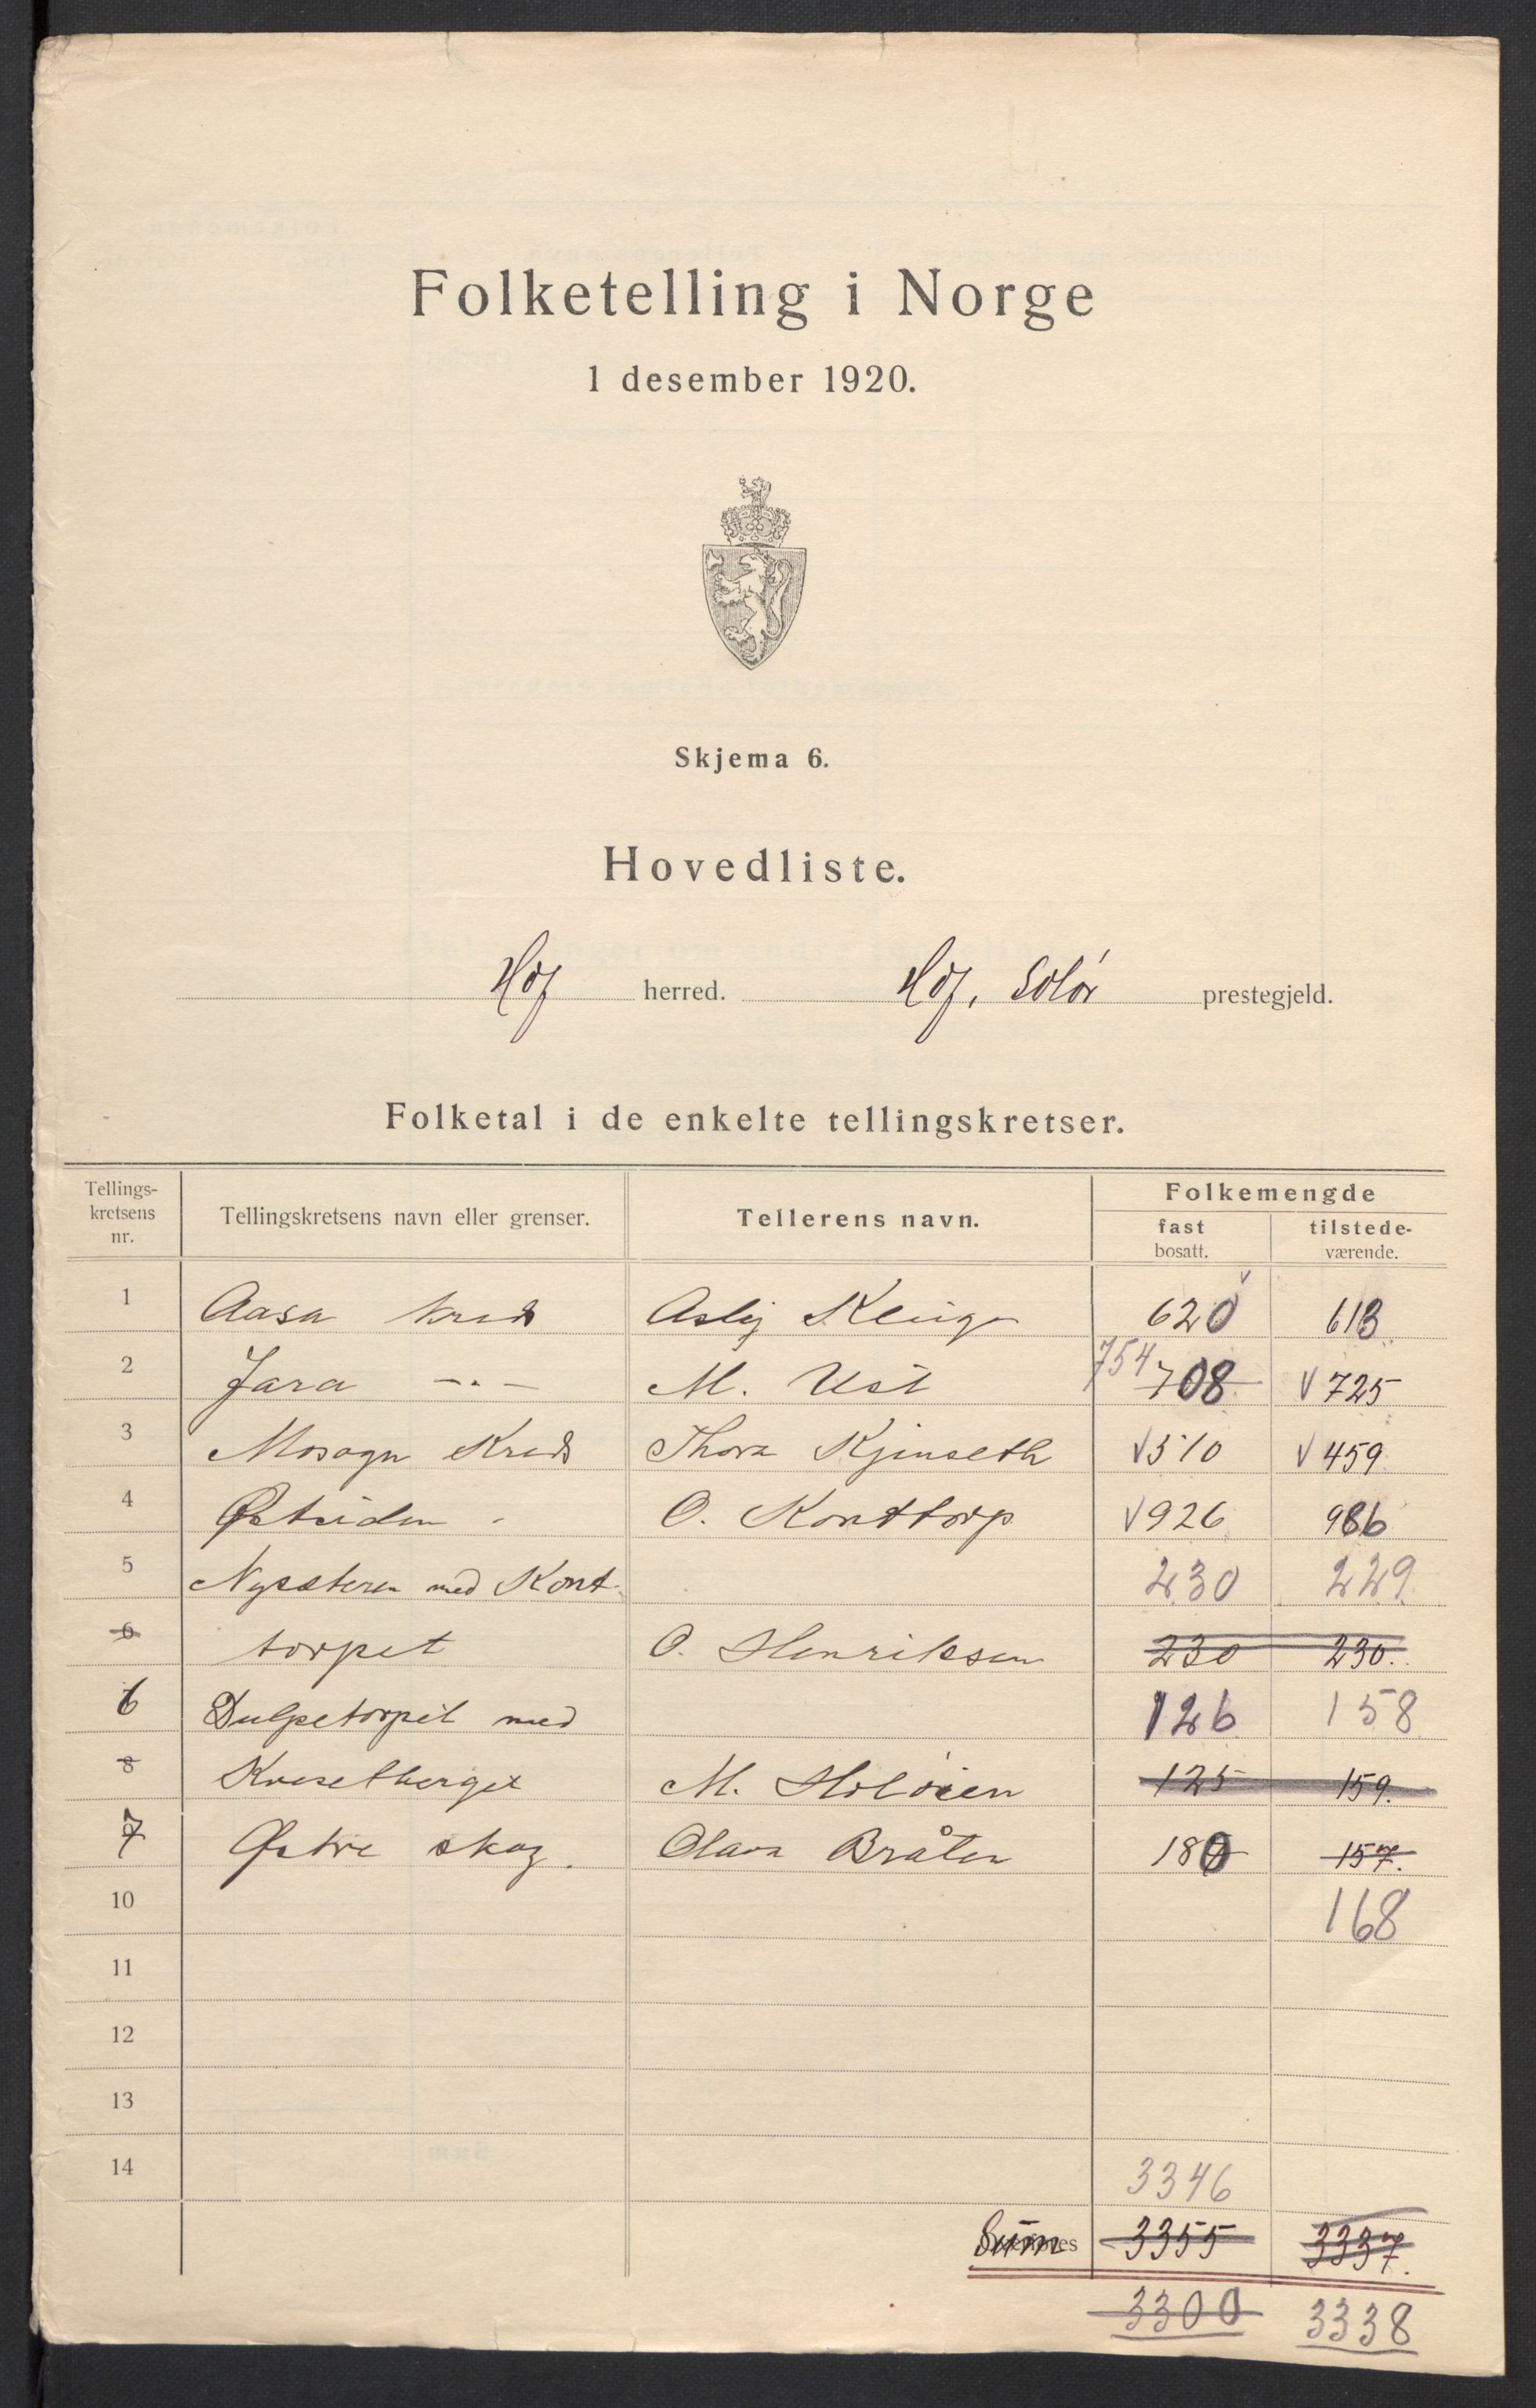 Folketelling i Norge
1 desember 1920.
Skjema 6.
Hovedliste.
Hof herred. Hof, Solør prestegjeld.
Folketal i de enkelte tellingskretser.
Tellings-kretsens nr. Tellingskretsens navn eller grenser. Tellerens navn. Folkemengde
fast bosatt. tilstede-værende.
1 Aasa kreds Aslög Klinge 620 613
2 Jara -"- M. Ust 754 708 725
3 Mosogn Kreds Thora Kjinseth 510 459
4 Østsiden - O. Konttorp 926 986
5 Nysæteren med Kont- 230 229
6 torpet O. Henriksen 230 230.
6 Dulpetorpet med 126 158
8 Kveselberget M. Holöien 125 159.
7 Østre skog. Olava Bråten 180 157.
10 168
11
12
13
14 3346
Sum 3355 3337.
3300 3338